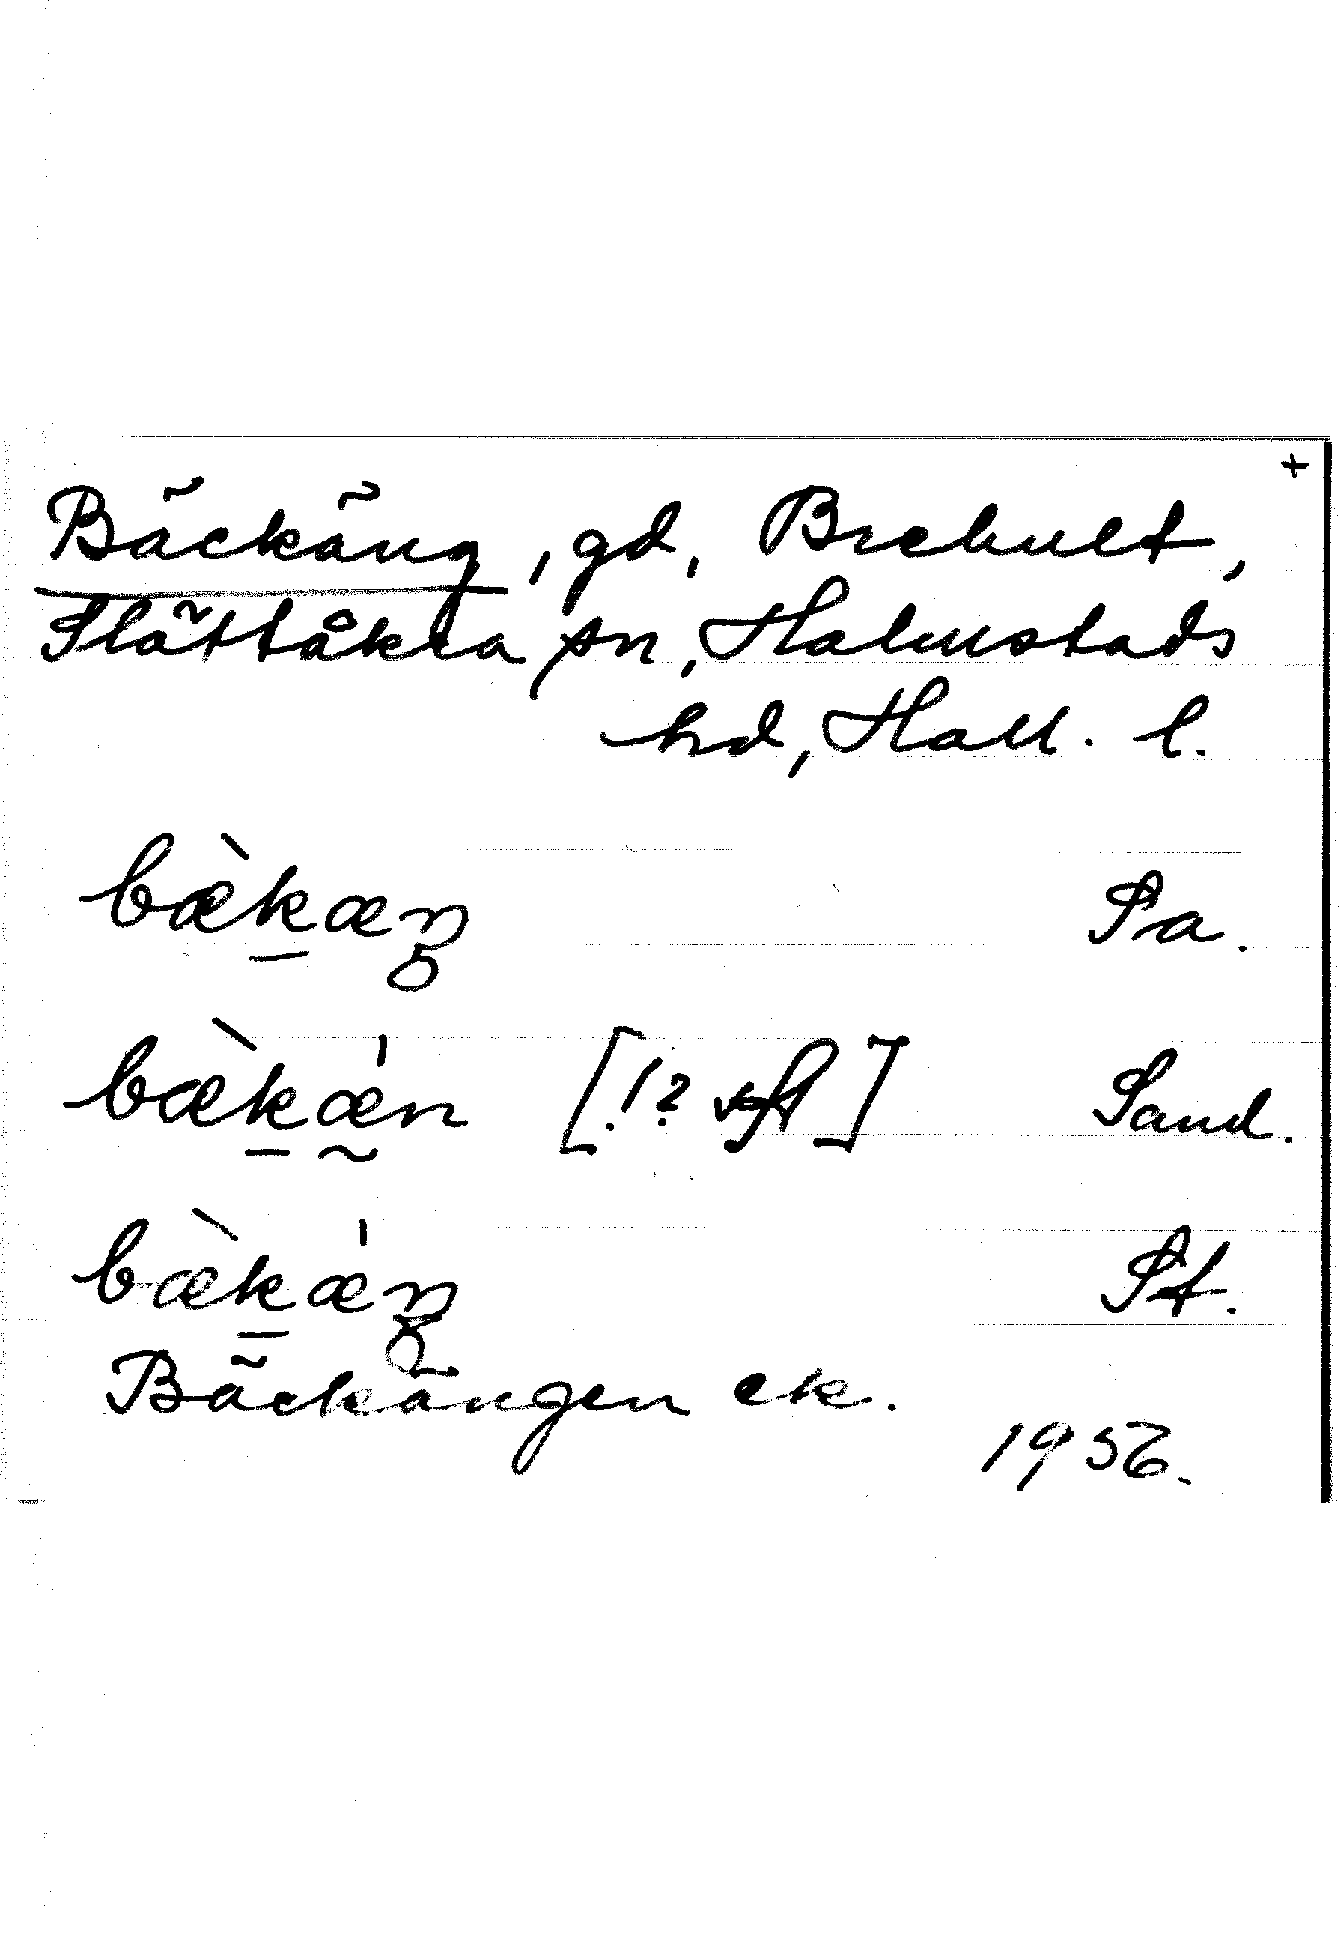 +
Bäckäng, gd, Brehult,
Slättåkra sn, Halmstads
hd, Hall. l.
bæ̀k̲æŋ Sa.
bæ̀k̲ǽ̰n [!? ] Sand.
bæ̀k̲ǽŋ St.
Bäckängen ek.
1956.